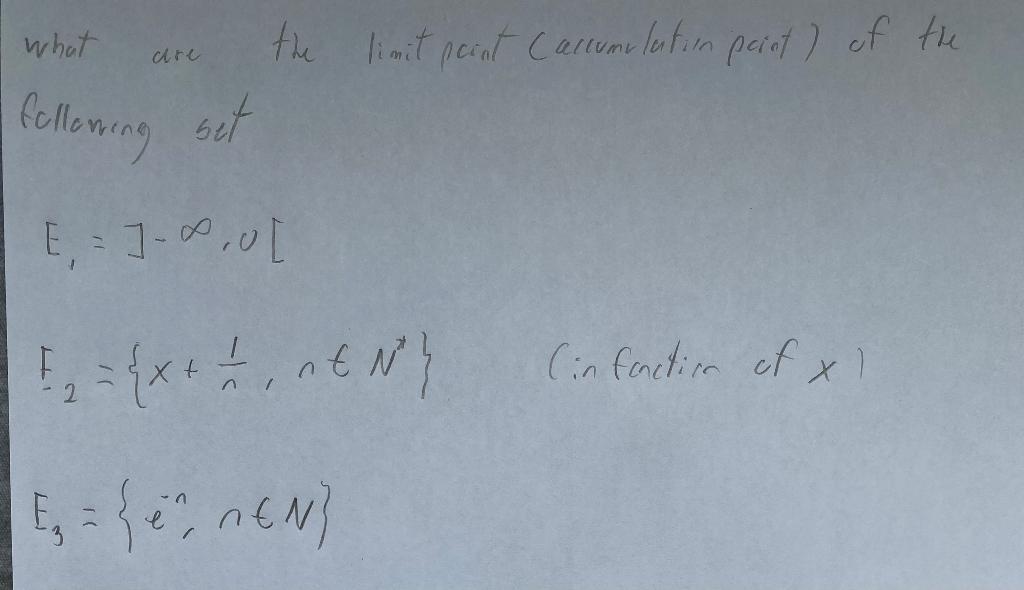 what are the limit point (accumulation point) of the
following set
E₁ = ]-∞, 0[
E₂ = {x + 1/n, n ∈ N*} (in fonction of x)
E₃ = {e⁻ⁿ, n ∈ N}